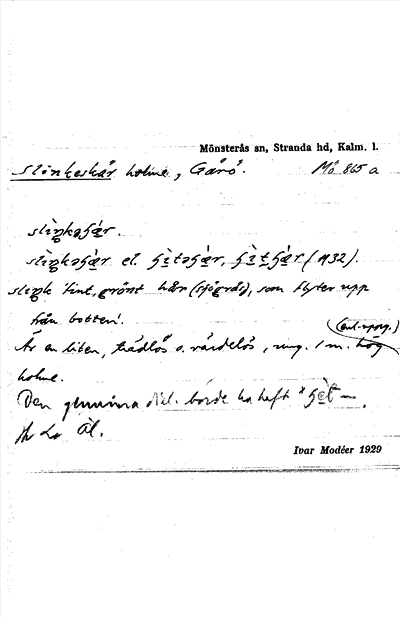 Mönsterås sn, Stranda hd, Kalm. l.
Slinkeskär holme, Gårö. Mö 865 a
slìŋkəʃæ̀r.
slìŋkəʃæ̀r el. ʃìtəʃæ̀r, ʃìtʃæ̀r (1932).
slìŋk 'fint, grönt hår (sjögräs), som flyter upp
från botten'.
(enl. uppg.)
Är en liten, trädlös o. värdelös, ung. 1 m. hög
holme.
Den genuina dial. borde ha haft *ʃèt–.
Ål.
Ivar Modéer 1929